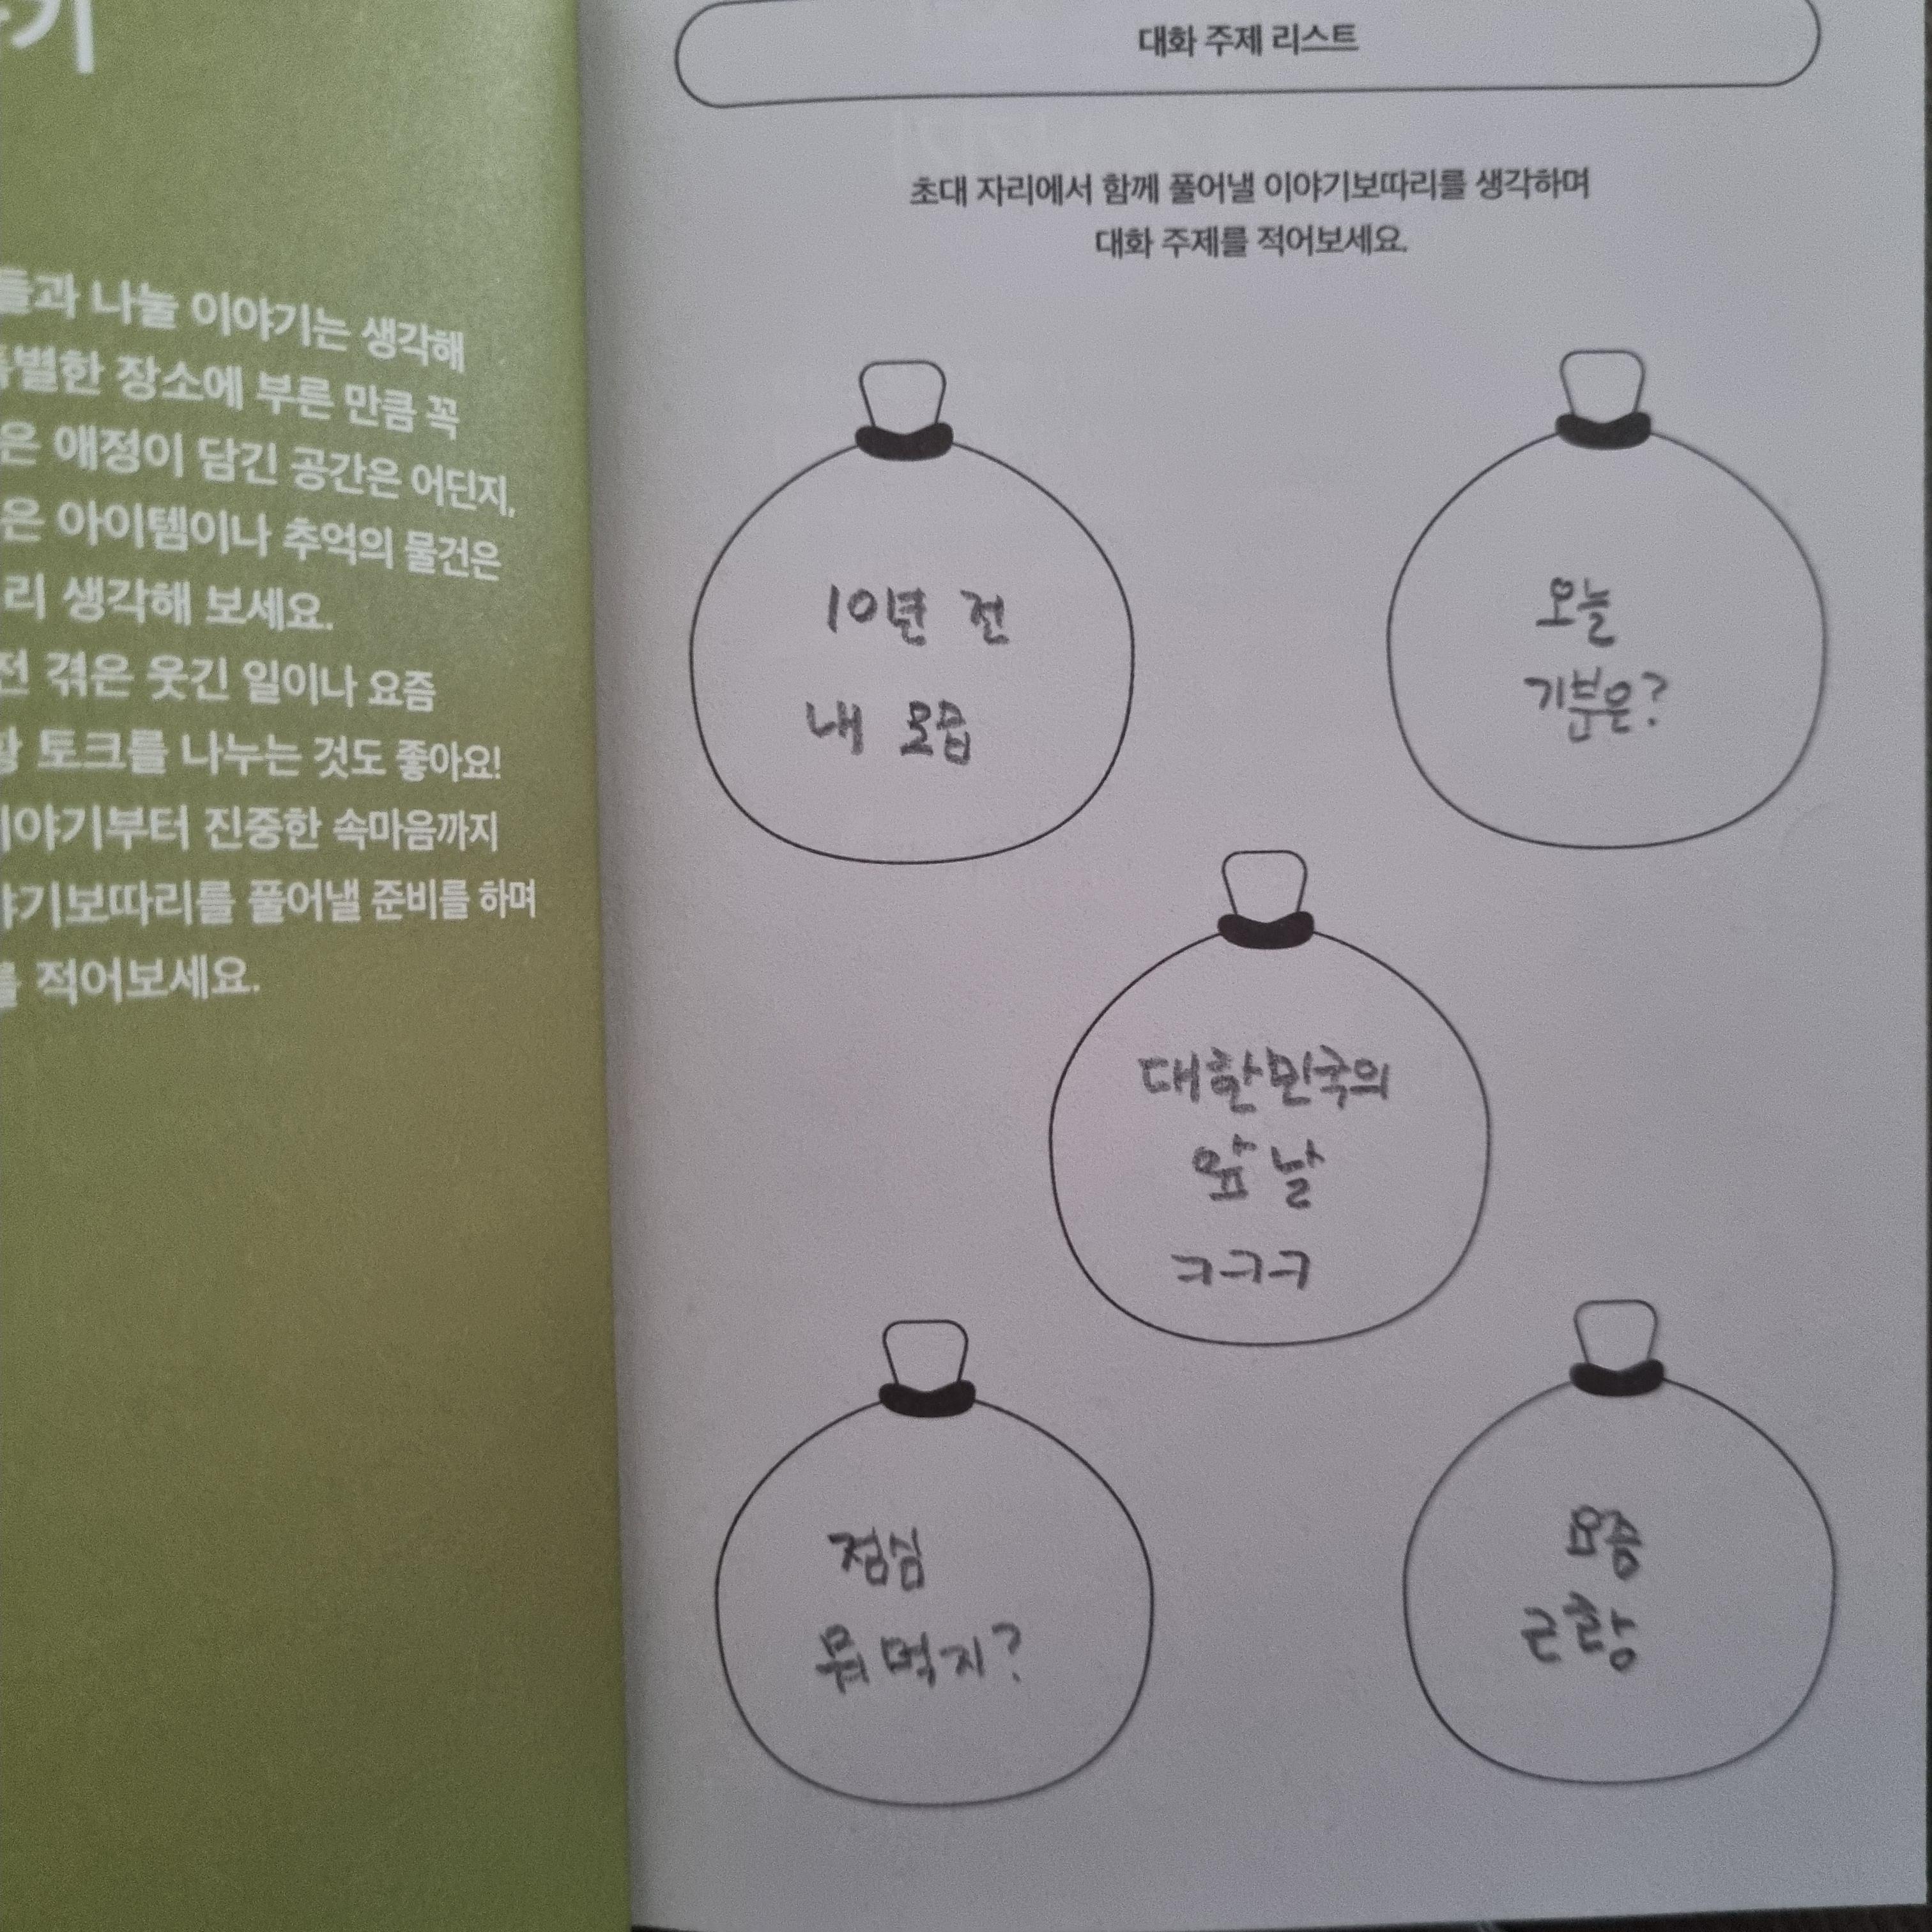 기
들과 나눌 이야기는 생각해
특별한 장소에 부른 만큼 꼭
은 애정이 담긴 공간은 어딘지,
은 아이템이나 추억의 물건은
리 생각해 보세요.
전 겪은 웃긴 일이나 요즘
황 토크를 나누는 것도 좋아요!
이야기부터 진중한 속마음까지
야기보따리를 풀어낼 준비를 하며
를 적어보세요.
대화 주제 리스트
초대 자리에서 함께 풀어낼 이야기보따리를 생각하며
대화 주제를 적어보세요.
10년 전
내 모습
오늘
기분은?
대한민국의
앞날
ㅋㅋㅋ
점심
뭐 먹지?
요즘
근황